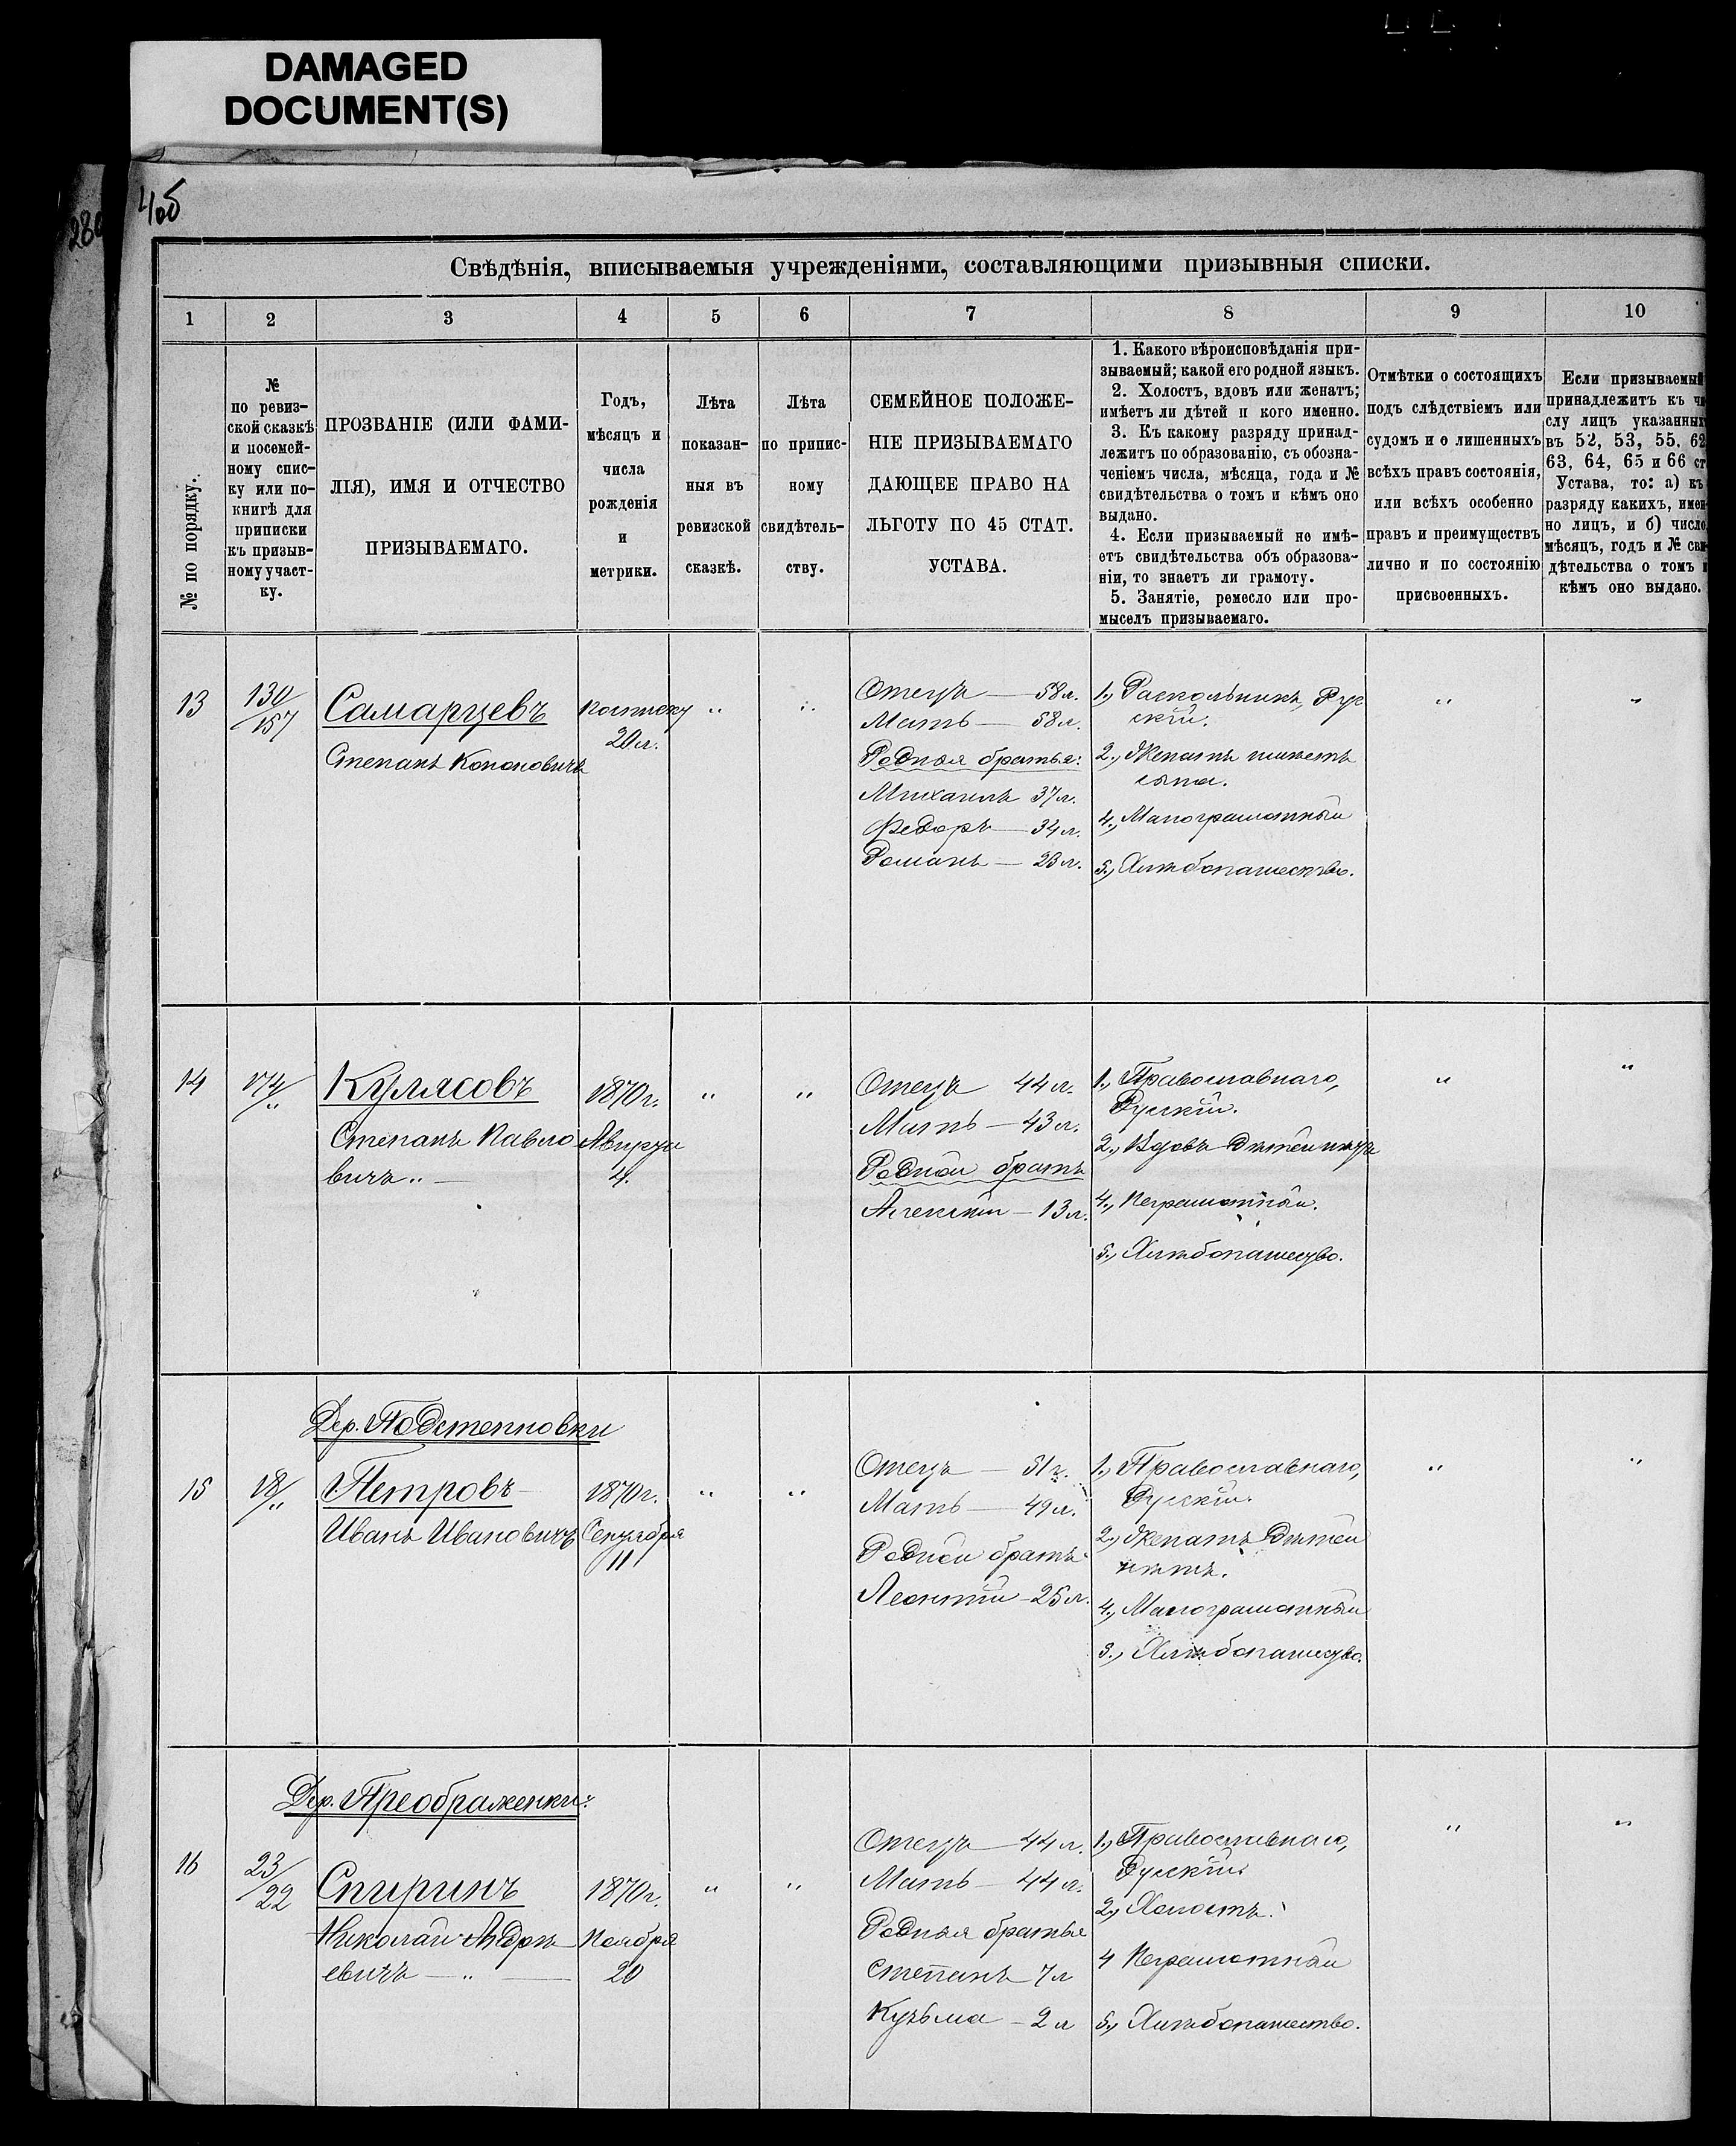 DAMAGED
DOCUMENT(S)
4об
280
Свѣдѣнія, вписываемыя учрежденіями, составляющими призывныя списки.
1 2 3 4 5 6 7 8 9 10
№ по порядку.
№
по ревиз-
ской сказкѣ
и посемей-
ному спис-
ку или по-
книгѣ для
приписки
къ призыв-
ному участ-
ку.
ПРОЗВАНІЕ (ИЛИ ФАМИ-
ЛІЯ), ИМЯ И ОТЧЕСТВО
ПРИЗЫВАЕМАГО.
Годъ,
мѣсяцъ и
числа
рожденія
и
метрики.
Лѣта
показан-
ныя въ
ревизской
сказкѣ.
Лѣта
по припис-
ному
свидѣтель-
ству.
СЕМЕЙНОЕ ПОЛОЖЕ-
НІЕ ПРИЗЫВАЕМАГО
ДАЮЩЕЕ ПРАВО НА
ЛЬГОТУ ПО 45 СТАТ.
УСТАВА.
1. Какого вѣроисповѣданія при-
зываемый; какой его родной языкъ.
2. Холостъ, вдовъ или женатъ;
имѣетъ ли дѣтей п кого именно.
3. Къ какому разряду принад-
лежитъ по образованію, съ обозна-
ченіемъ числа, мѣсяца, года и №
свидѣтельства о томъ и кѣмъ оно
выдано.
4. Если призываемый не имѣ-
етъ свидѣтельства объ образова-
ніи, то знаетъ ли грамоту.
5. Занятіе, ремесло или про-
мыселъ призываемаго.
Отмѣтки о состоящихъ
подъ слѣдствіемъ или
судомъ и о лишенныхъ
всѣхъ правъ состоянія,
или всѣхъ особенно
правъ и преимуществъ
лично и по состоянію
присвоенныхъ.
Если призываемый
принадлежитъ къ чи
слу лицъ указанных
въ 52, 53, 55, 62
63, 64, 65 и 66 ст
Устава, то: а) къ
разряду какихъ, имен-
но лицъ, и б) число,
мѣсяцъ, годъ и № сви-
дѣтельства о томъ и
кѣмъ оно выдано.
13
130/157
Самарцевъ
Степанъ Кононовичъ
20 л.
"
"
Отецъ — 58 л.
Мать — 58 л.
Родныя братья:
Михаилъ 37 л.
Федоръ — 34 л.
Романъ — 23 л.
1., Раскольникъ, Рус
скій.
2., Женатъ имѣетъ
сына.
4., Малограмотный
5., Хлѣбопашество.
"
"
14
174/"
Кулясовъ
Степанъ Павло
вичъ " —
1870 г.
Августа
4.
"
"
Отецъ 44 л.
Мать — 43 л.
Родной братъ
Алексѣй — 13 л.
1., Православнаго,
Русскій.
2., Вдовъ дѣтей нѣтъ
4., Неграмотный.
5., Хлѣбопашество.
"
"
Дер. Подстепновки
15
18/"
Петровъ
Иванъ Ивановичъ
1870 г.
Сентября
11
"
"
Отецъ — 51 г.
Мать — 49 л.
Родной братъ
Леонтій — 25 л.
1., Православнаго,
Русскій.
2., Женатъ дѣтей
нѣтъ.
4., Малограмотный
5., Хлѣбопашество.
"
"
Дер. Преображенки:
16
23/22
Спиринъ
Николай Андре
евичъ — " —
1870 г.
Ноября
20
"
"
Отецъ — 44 л.
Мать — 44 л.
Родныя братья
Степанъ 7 л
Кузьма — 2 л
1., Православнаго,
Русскій
2., Холостъ.
4 Неграмотный
5., Хлѣбопашество.
"
"